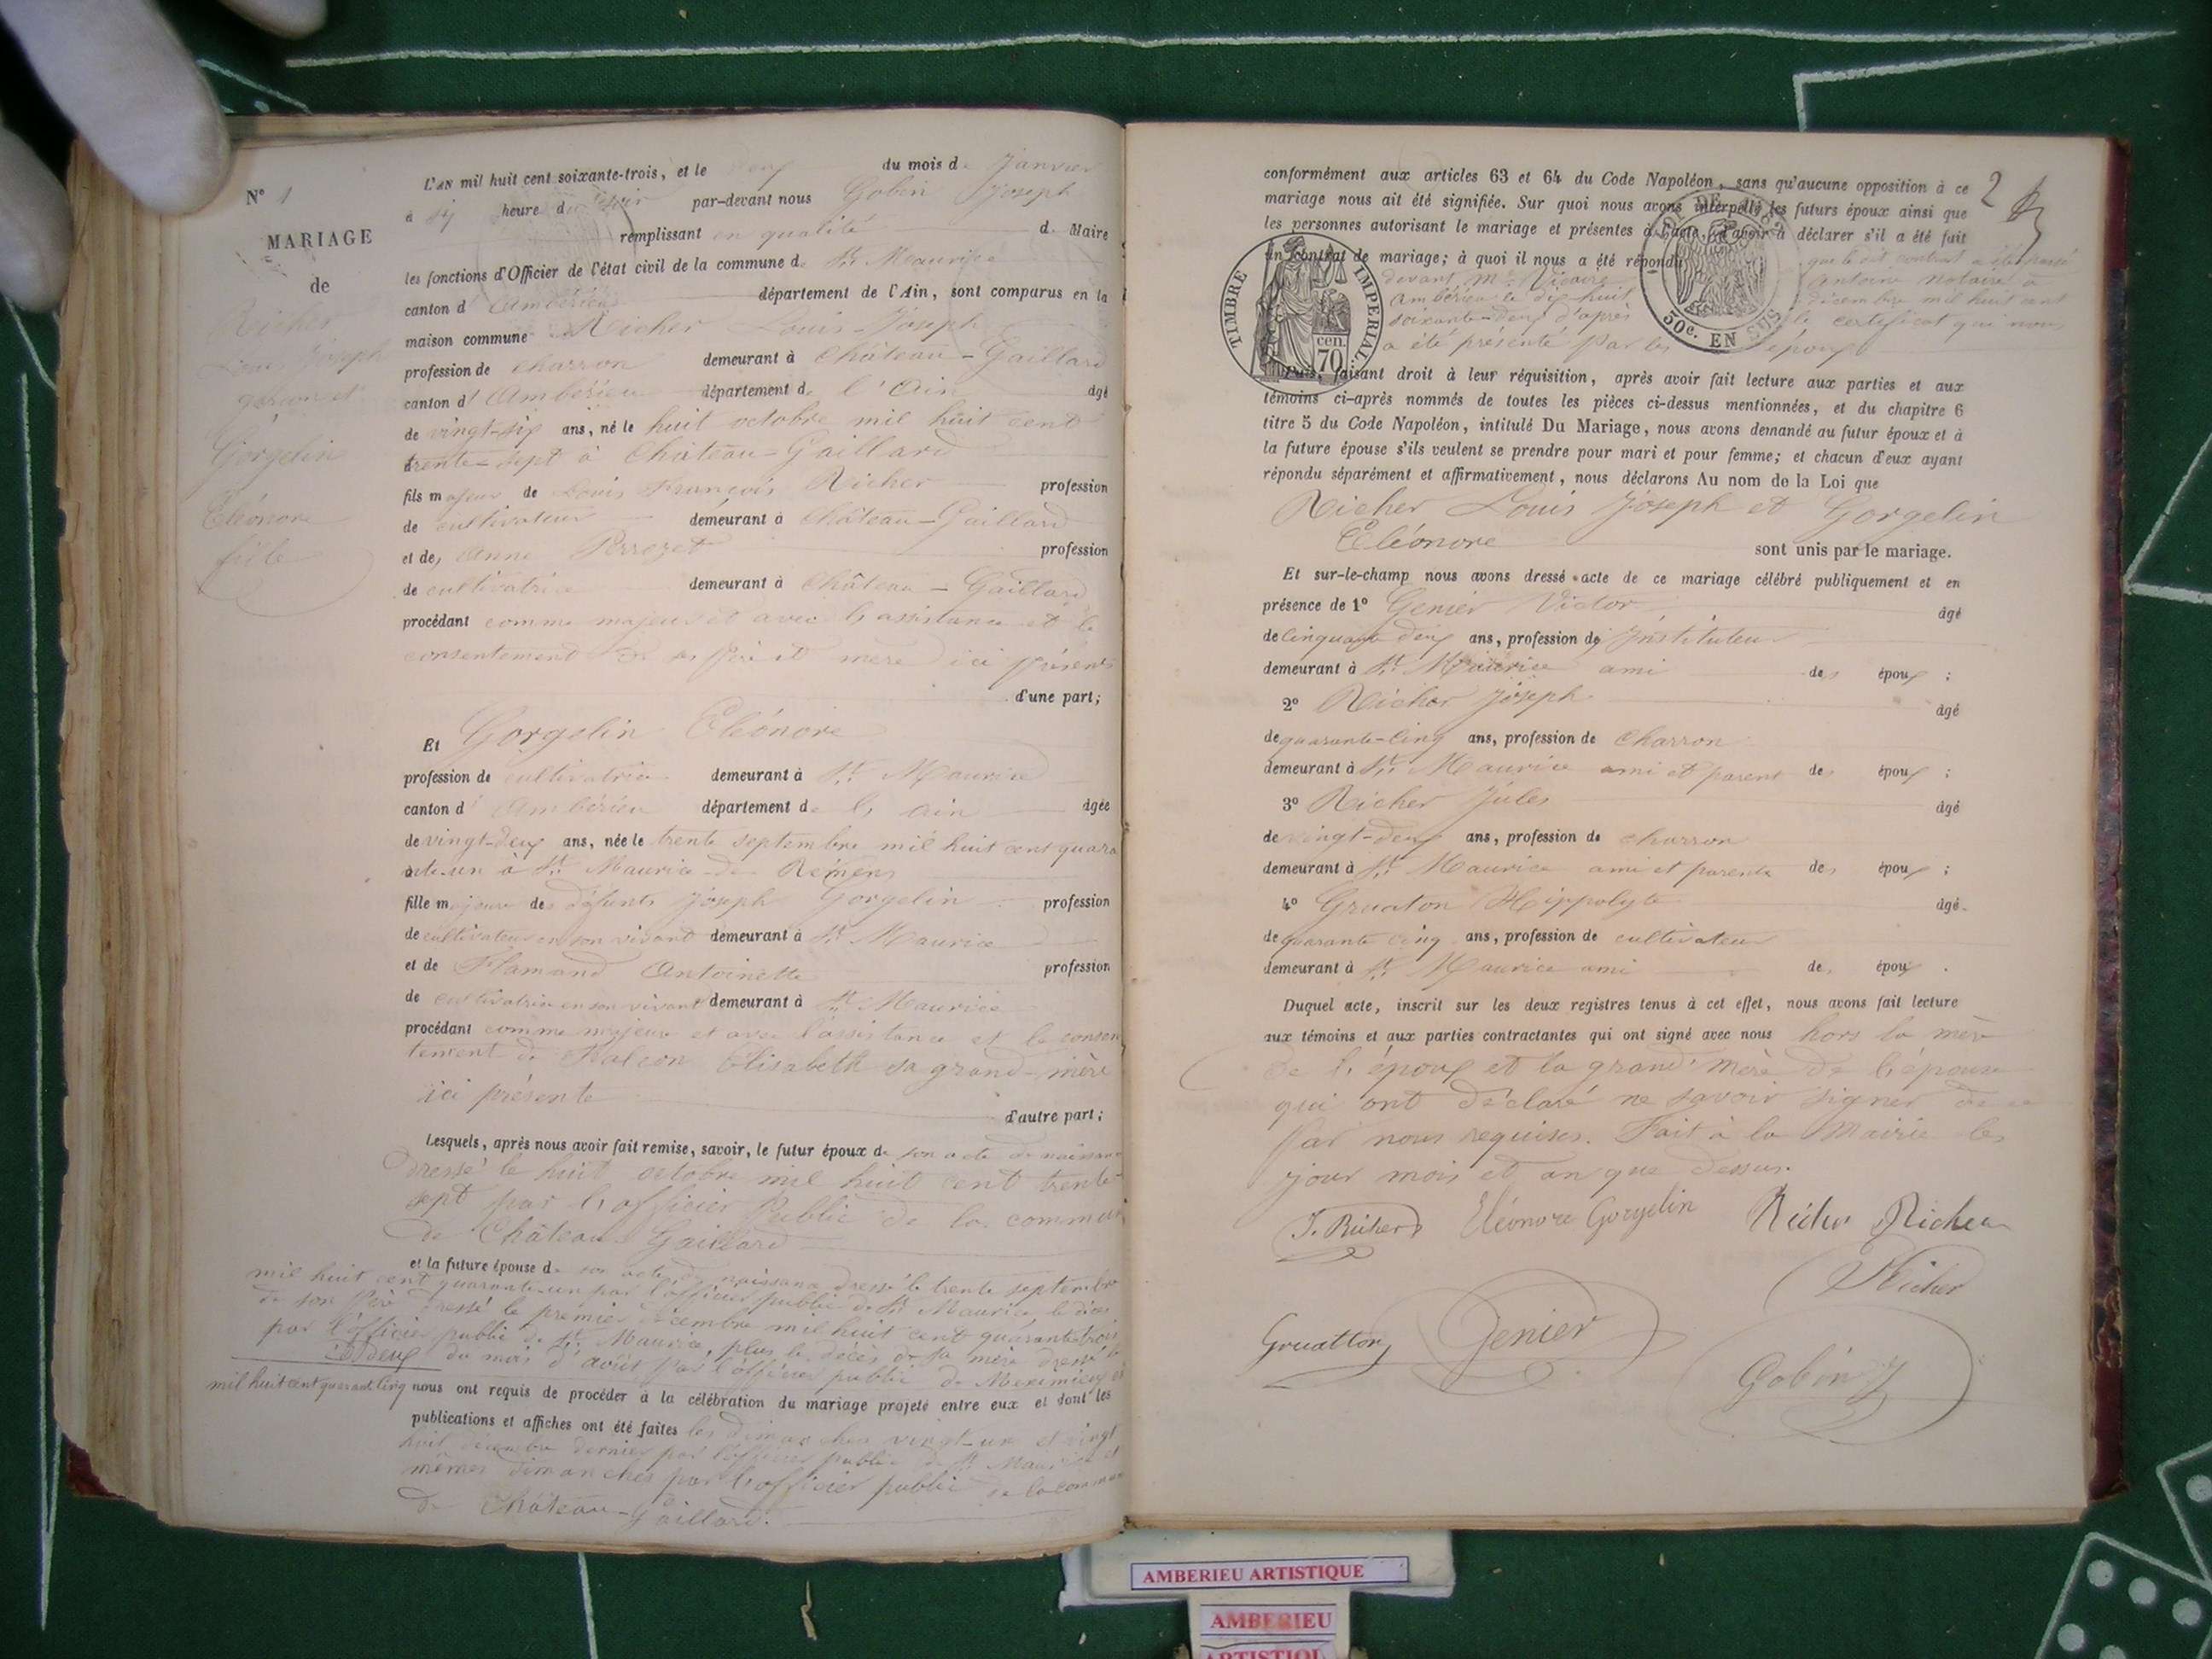 N° 1
MARIAGE
de
Richer
Louis Joseph
garçon et
Gorgelin
Eléonore
fille
L'AN mil huit cent soixante-trois, et le du mois d Janvier
à six heure du soir par-devant nous Gobin Joseph
remplissant en qualité d Maire
les fonctions d'Officier de l'état civil de la commune de St Maurice
canton d'Ambérieu département de l'Ain, sont comparus en la
maison commune Richer Louis-Joseph
profession de charron demeurant à Château-Gaillard
canton d'Ambérieu département de l'Ain âgé
de vingt-six ans, né le huit octobre mil huit cent
trente-sept à Château-Gaillard
fils majeur de Louis François Richer profession
de cultivateur demeurant à Château-Gaillard
et de, Anne Perrozet profession
de cultivatrice demeurant à Château-Gaillard
procédant comme majeur et avec l'assistance et le
consentement de ses père et mère ici présents
d'une part;
Et Gorgelin Eléonore
profession de cultivatrice demeurant à St Maurice
canton d'Ambérieu département de l'ain âgée
de vingt-deux ans, née le trente septembre mil huit cent quara
nte-un à St Maurice-de-Rémens
fille majeure des défunts Joseph Gorgelin profession
de cultivateur en son vivant demeurant à St Maurice
et de Flamand Antoinette profession
de cultivatrice en son vivant demeurant à St Maurice
procédant comme majeure et avec l'assistance et le consen
tement de Falcon Elisabeth sa grand-mère
ici présente
d'autre part;
Lesquels, après nous avoir fait remise, savoir, le futur époux de son acte de naissance
dressé le huit octobre mil huit cent trente-
sept par l'officier Public de la commune
de Château-Gaillard
et la future épouse de son acte de naissance dressé le trente septembre
mil huit cent quarante-un par l'officier public de St Maurice, le décès
de son Père dressé le premier décembre mil huit cent quarante trois
par l'officier public de St Maurice, plus le décès de sa mère dressé le
deux du mois d'août par l'officier public de Meximieux
mil huit cent quarante cinq nous ont requis de procéder à la célébration du mariage projeté entre eux et dont les
publications et affiches ont été faites les dimanches vingt-un et vingt
huit décembre dernier par l'officier public de St Maurice et
mêmes dimanches par l'officier public de la commune
de Château-Gaillard.
2
conformément aux articles 63 et 64 du Code Napoléon, sans qu'aucune opposition à ce
mariage nous ait été signifiée. Sur quoi nous avons interpellé les futurs époux ainsi que
les personnes autorisant le mariage et présentes à l'acte, d'avoir à déclarer s'il a été fait
un contrat de mariage; à quoi il nous a été répondu que le dit contrat a été passé
devant Me Vicaire Antoine notaire à
Ambérieu le dix huit décembre mil huit cent
soixante-deux d'après le certificat qui nous
a été présenté par les époux
TIMBRE IMPERIAL
cen.
70
50c. EN SUS
Puis, faisant droit à leur réquisition, après avoir fait lecture aux parties et aux
témoins ci-après nommés de toutes les pièces ci-dessus mentionnées, et du chapitre 6
titre 5 du Code Napoléon, intitulé Du Mariage, nous avons demandé au futur époux et à
la future épouse s'ils veulent se prendre pour mari et pour femme; et chacun d'eux ayant
répondu séparément et affirmativement, nous déclarons Au nom de la Loi que
Richer Louis Joseph et Gorgelin
Eléonore sont unis par le mariage.
Et sur-le-champ nous avons dressé acte de ce mariage célébré publiquement et en
présence de 1° Genier Victor âgé
de cinquante deux ans, profession de Instituteur
demeurant à St Maurice ami des époux ;
2° Richer Joseph âgé
de quarante-cinq ans, profession de Charron
demeurant à St Maurice ami et parent des époux ;
3° Richer Jules âgé
de vingt-deux ans, profession de charron
demeurant à St Maurice ami et parent des époux ;
4° Gruaton Hippolyte âgé
de quarante cinq ans, profession de cultivateur
demeurant à St Maurice ami des époux .
Duquel acte, inscrit sur les deux registres tenus à cet effet, nous avons fait lecture
aux témoins et aux parties contractantes qui ont signé avec nous hors la mère
de l'époux et la grand'mère de l'épouse
qui ont déclaré ne savoir signer de ce
Par nous requises. Fait à la Mairie les
jour mois et an que dessus.
J. Richer Eléonore Gorgelin Richer Richer
Richer
Gruatton Genier
Gobin J
AMBERIEU ARTISTIQUE
AMBERIEU
ARTISTIQU